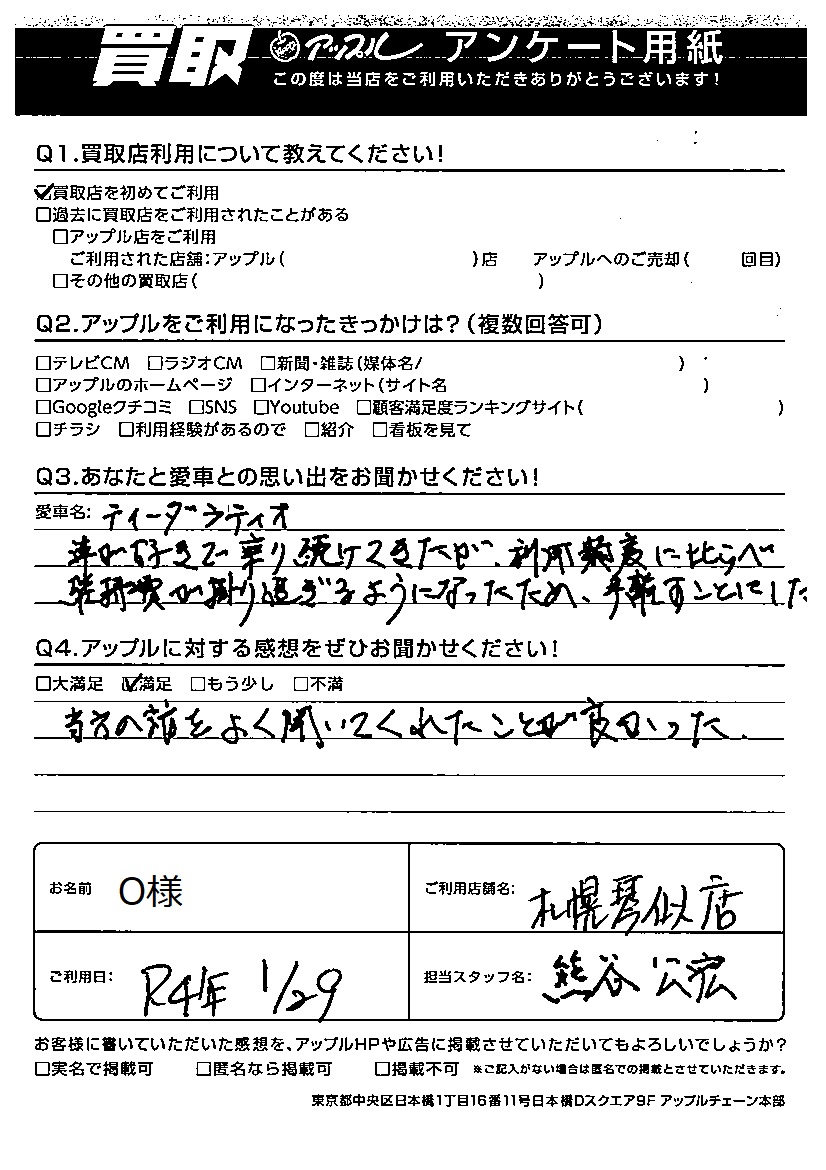 買取 アップル アンケート用紙
この度は当店をご利用いただきありがとうございます!
Q1.買取店利用について教えてください!
☑買取店を初めてご利用
□過去に買取店をご利用されたことがある
□アップル店をご利用
ご利用された店舗:アップル( )店 アップルへのご売却( 回目)
□その他の買取店( )
Q2.アップルをご利用になったきっかけは?(複数回答可)
□テレビCM □ラジオCM □新聞・雑誌(媒体名/ )
□アップルのホームページ □インターネット(サイト名 )
□Googleクチコミ □SNS □Youtube □顧客満足度ランキングサイト( )
□チラシ □利用経験があるので □紹介 □看板を見て
Q3.あなたと愛車との思い出をお聞かせください!
愛車名: ティーダラティオ
車が好きで乗り続けてきたが、利用頻度に比らべ
維持費が掛り過ぎるようになったため、手離すことにした
Q4.アップルに対する感想をぜひお聞かせください!
□大満足 ☑満足 □もう少し □不満
当方の話をよく聞いてくれたことが良かった.
お名前 O様 ご利用店舗名: 札幌琴似店
ご利用日: R4年 1/29 担当スタッフ名: 熊谷 公宏
お客様に書いていただいた感想を、アップルHPや広告に掲載させていただいてもよろしいでしょうか?
□実名で掲載可 □匿名なら掲載可 □掲載不可 ※ご記入がない場合は匿名での掲載とさせていただきます。
東京都中央区日本橋1丁目16番11号日本橋Dスクエア9F アップルチェーン本部